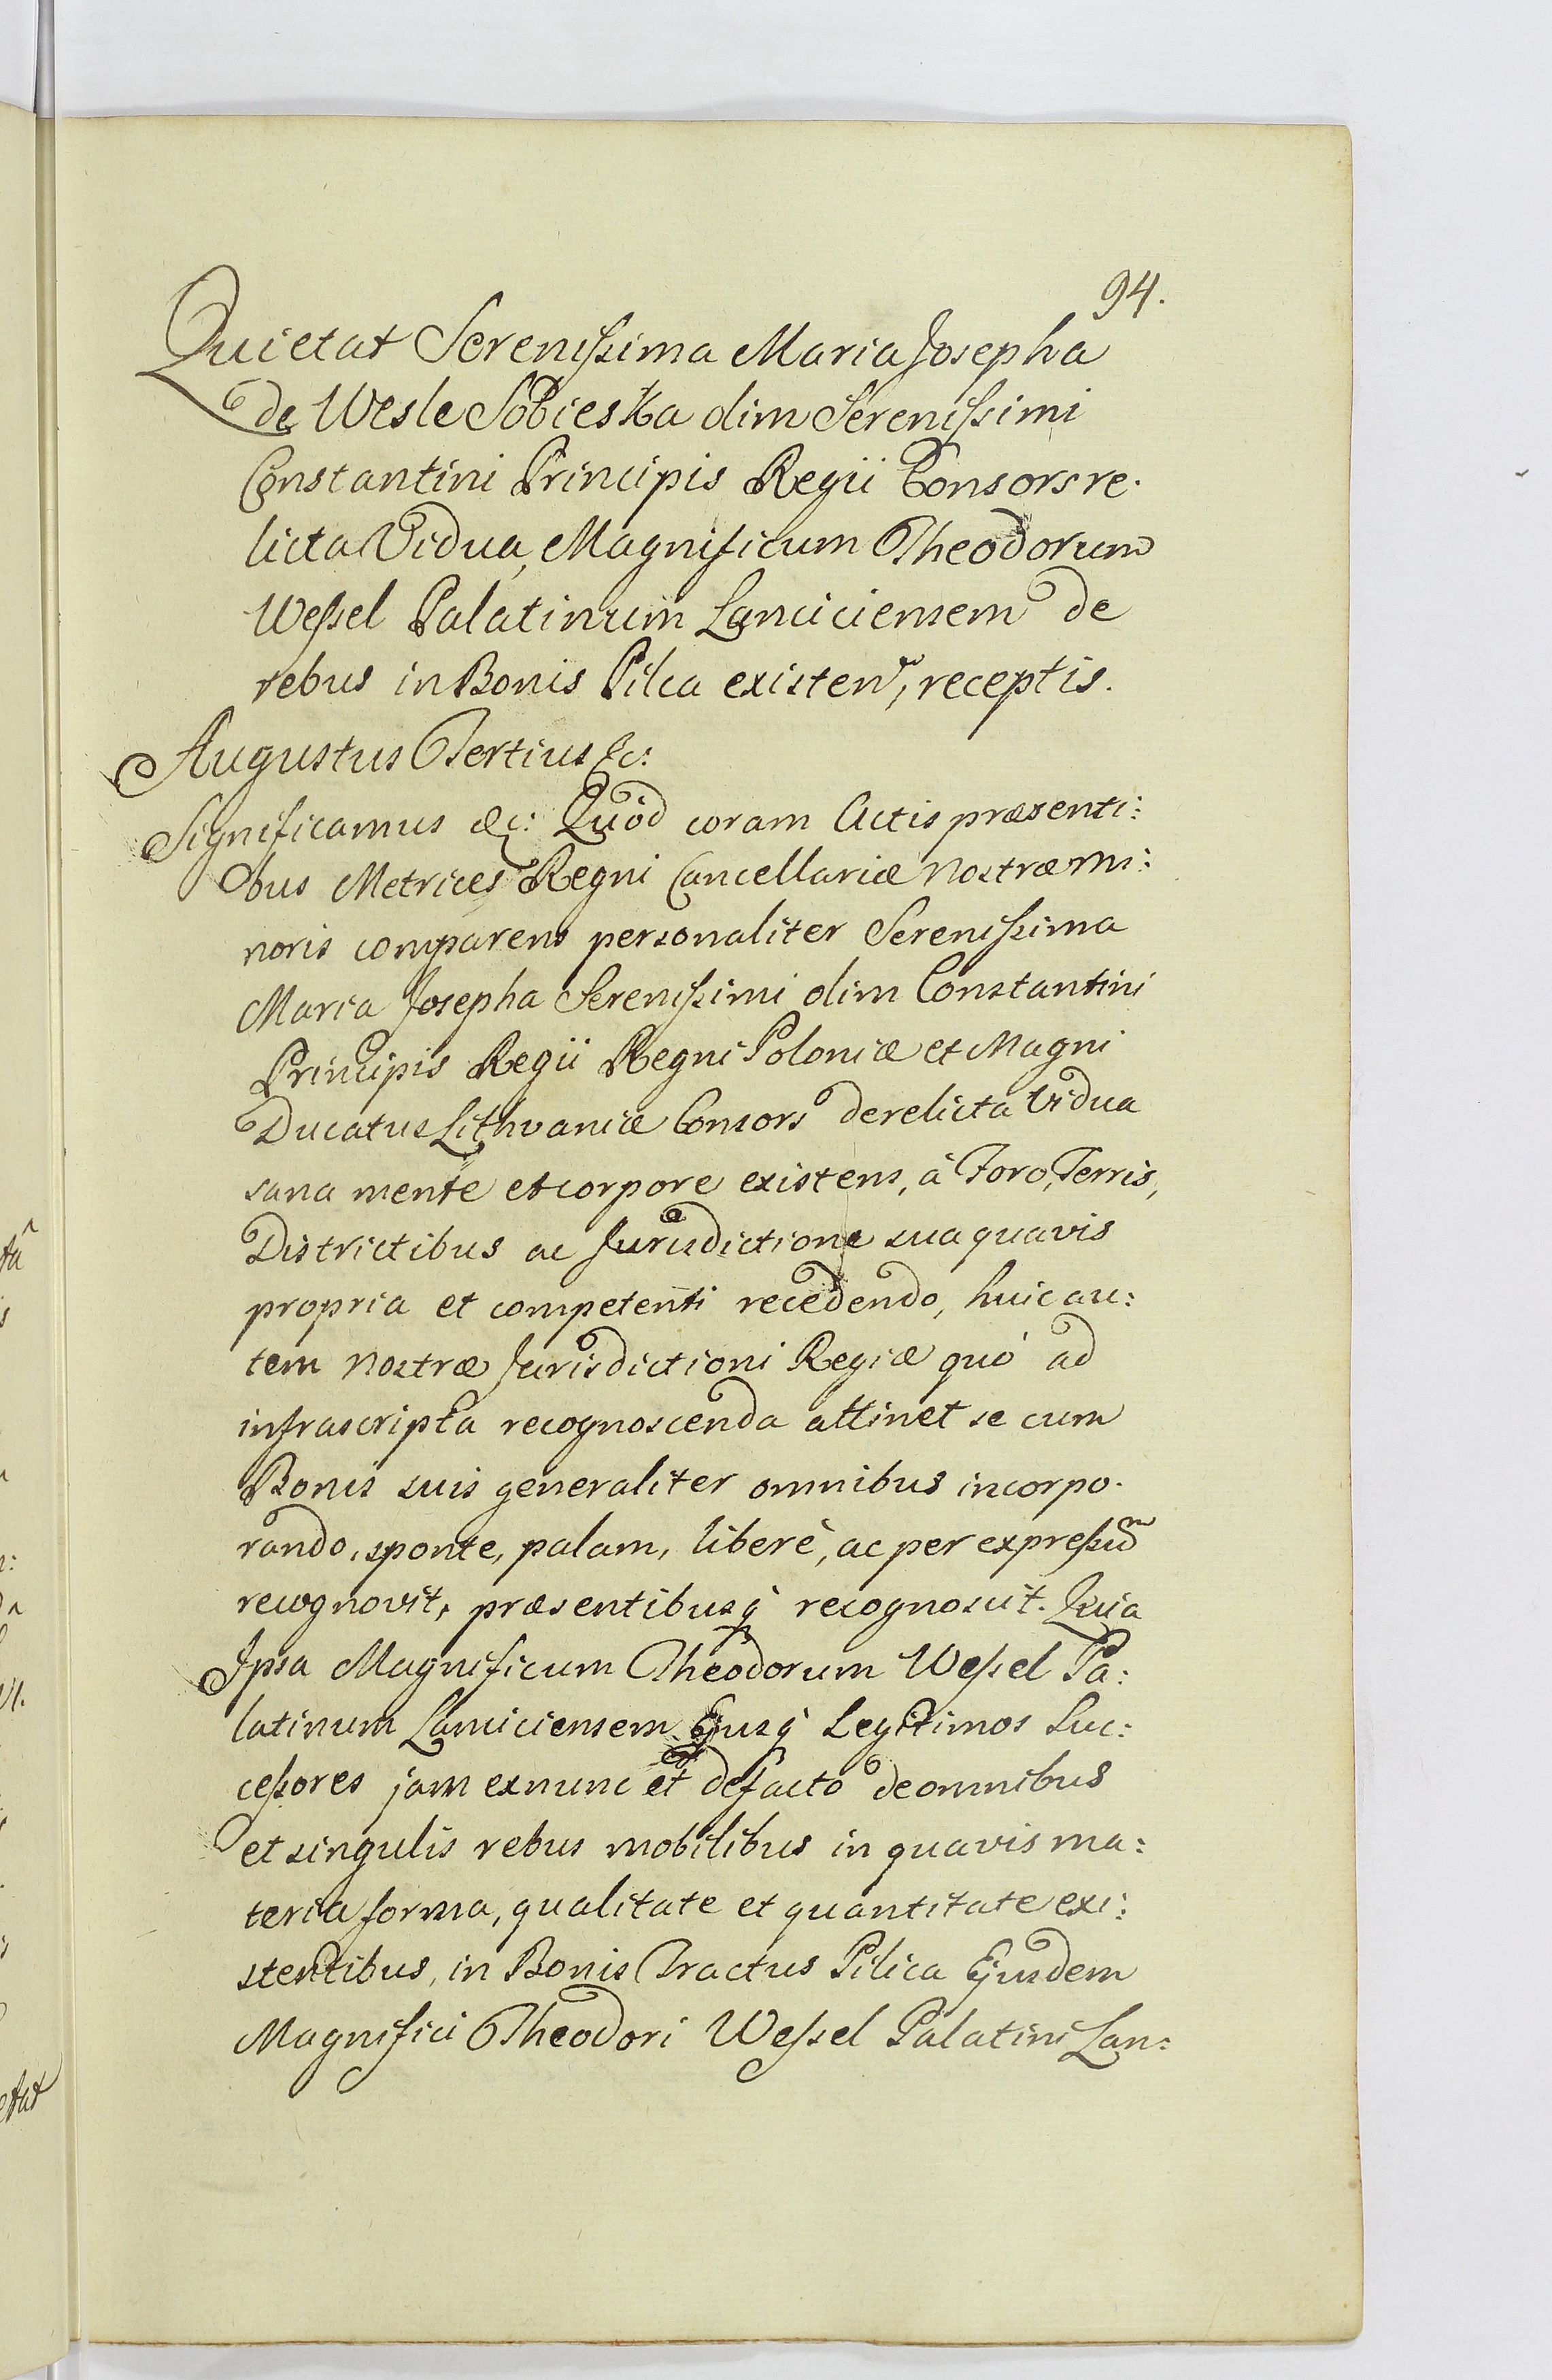 94.
Quietat Serenissima Maria Josepha
de Wesle Sobieska olim Serenissimi
Constantini Principis Regii Consors re.
licta Vidua, Magnificum Theodorum
Wessel Palatinum Lanciciensem de
rebus in Bonis Pilca existen, receptis.
Augustus Tertius &c:
Significamus &c: Quòd coram Actis præsenti:
bus Metrices Regni Cancellariæ Nostræ mi:
noris comparens personaliter Serenissima
Maria Josepha Serenissimi olim Constantini
Principis Regii Regni Poloniæ et Magni
Ducatus Lithvaniæ Consors derelicta Vidua
sana mente et corpore existens, à Foro, Terris,
Districtibus ac Jurisdictione sua quavis
propria et competenti recedendo, huic au:
tem Nostræ Jurisdictioni Regiæ quó ad
infrascripta recognoscenda attinet se cum
Bonis suis generaliter omnibus incorpo.
rando, sponte, palam, liberè, ac per expressũ
recognovit, præsentibusq recognoscit. Quia
Ipsa Magnificum Theodorum Wessel Pa:
latinum Lanciciensem Ejusq Legitimos Suc:
cessores jam exnunc et defacto de omnibus
et singulis rebus mobilibus in quavis ma:
teria forma, qualitate et quantitate exi:
stentibus, in Bonis Tractus Pilica Ejusdem
Magnifici Theodori Wessel Palatini Lan: